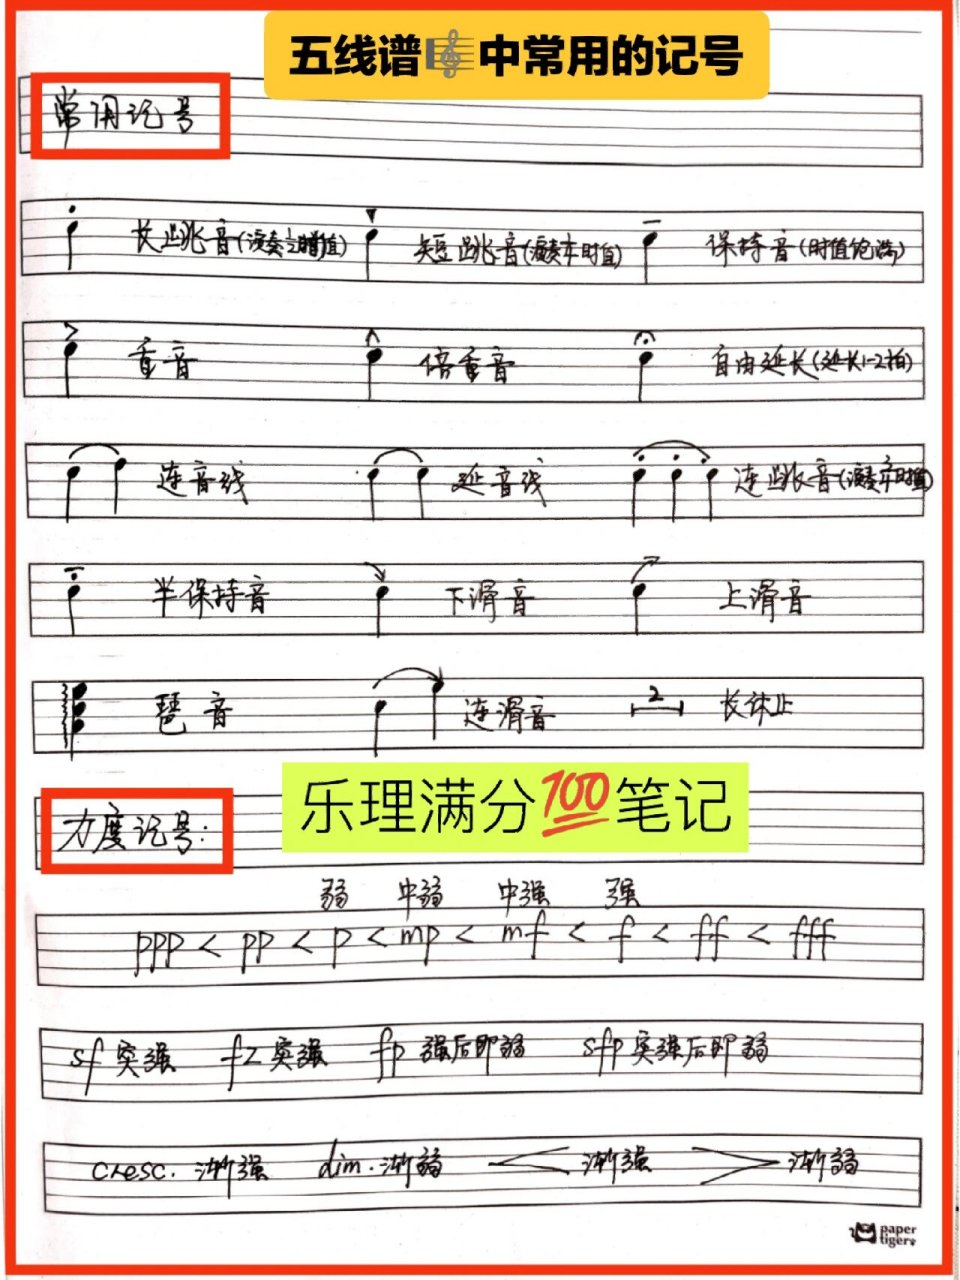 五线谱🎼中常用的记号
常用记号
长跳音(演奏½时值) 短跳音(演奏¼时值) 保持音(时值饱满)
重音 倍重音 自由延长(延长1-2拍)
连音线 延音线 连跳音(演奏¾时值)
半保持音 下滑音 上滑音
琶音 连滑音 2 长休止
乐理满分💯笔记
力度记号:
弱 中弱 中强 强
ppp < pp < p < mp < mf < f < ff < fff
sf 突强 fz 突强 fp 强后即弱 sfp 突强后即弱
cresc. 渐强 dim. 渐弱 渐强 渐弱
paper
tiger